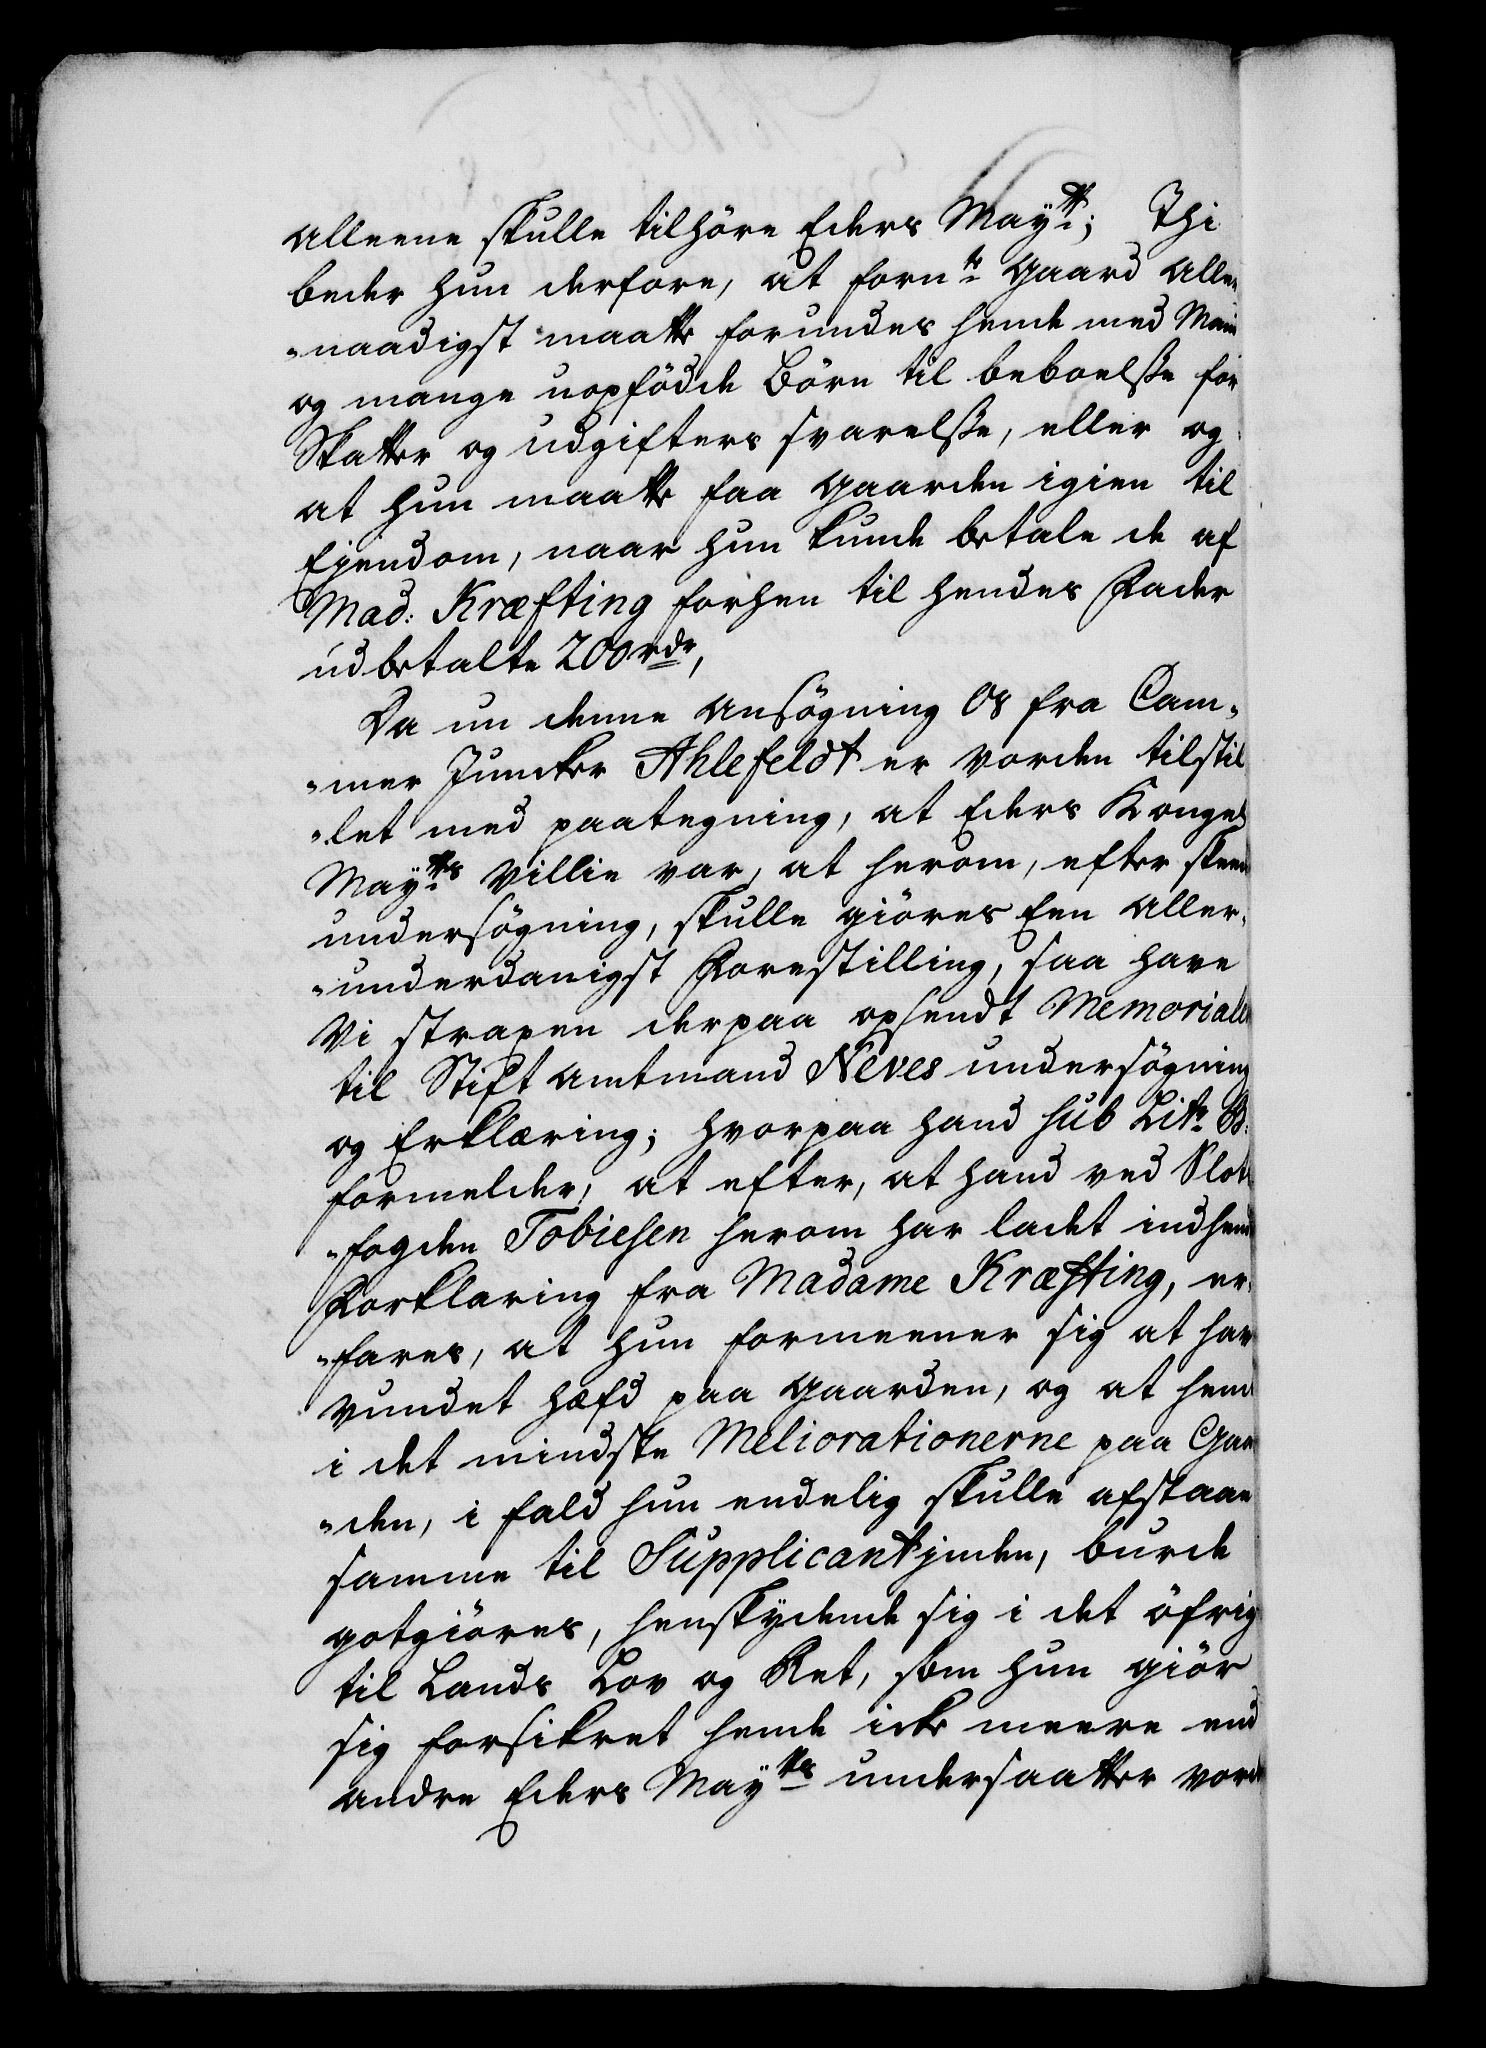 alleene skulle tilhöre Eders Maytt; Thi
beder hun derfore, at fornte Gaard aller¬
-naadigst maatte forundes hende med Mand
og mange uopfödde Börn til beboelsse for
Skatter og udgifters svarelsse, eller og
at hun maatte faa Gaarden igien til
Ejendom, naar hun kunde betale de af
Mad: Kræfting forhen til hendes Fader
udbetalte 200 rdr,
Da nu denne Ansögning Os fra Cam-
-mer Juncker Ahlefeldt er vorden tilstil
-let med paategning, at Eders Kongel
Maytts Villie var, at herom, efter skeed
undersögning, skulle giöres Een Aller-
-underdanigst Forestilling, saa have
Vi straxen derpaa opsendt Memorialen
til Stiftamtmand Neves undersögning
og Erklæring; hvorpaa hand sub Litr B:
formelder, at efter, at hand ved Slots
-fogden Tobiesen herom har ladet indhente
Forklaring fra Madame Kræfting, er-
-fares, at hun formeener sig at have
vundet hæfd paa Gaarden, og at hende
i det mindste Meliorationerne paa Gaar
-den, i fald hun endelig skulle afstaae
samme til Supplicantjnden, burde
gotgiöres, henskydende sig i det öfrig
til Lands Lov og Ret, som hun giör
sig forsikret hende icke meere end
andre Eders Maytts undersaatter vorde